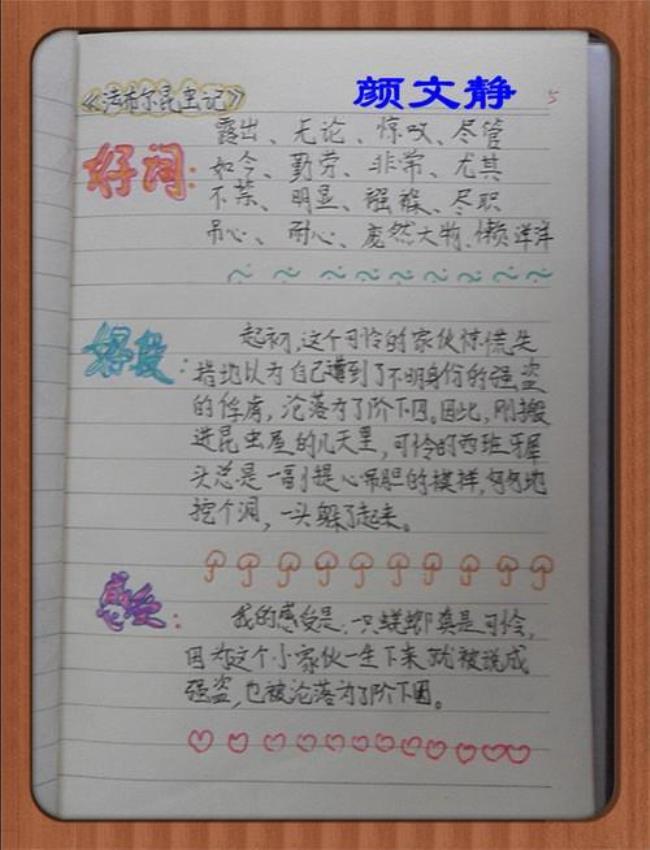 《法布尔昆虫记》 颜文静 5
好词： 露出、无论、惊叹、尽管
如今、勤劳、非常、尤其
不禁、明显、襁褓、尽职
吊心、耐心、庞然大物、懒洋洋
好段： 起初，这个可怜的家伙惊慌失
措地以为自己遭到了不明身份的强盗
的俘虏，沦落为了阶下囚。因此，刚搬
进昆虫屋的几天里，可怜的西班牙犀
头总是一副提心吊胆的模样，匆匆地
挖个洞，一头躲了起来。
感受： 我的感受是：一只蜣螂真是可怜，
因为这个小家伙一生下来就被说成
强盗，也被沦落为了阶下囚。